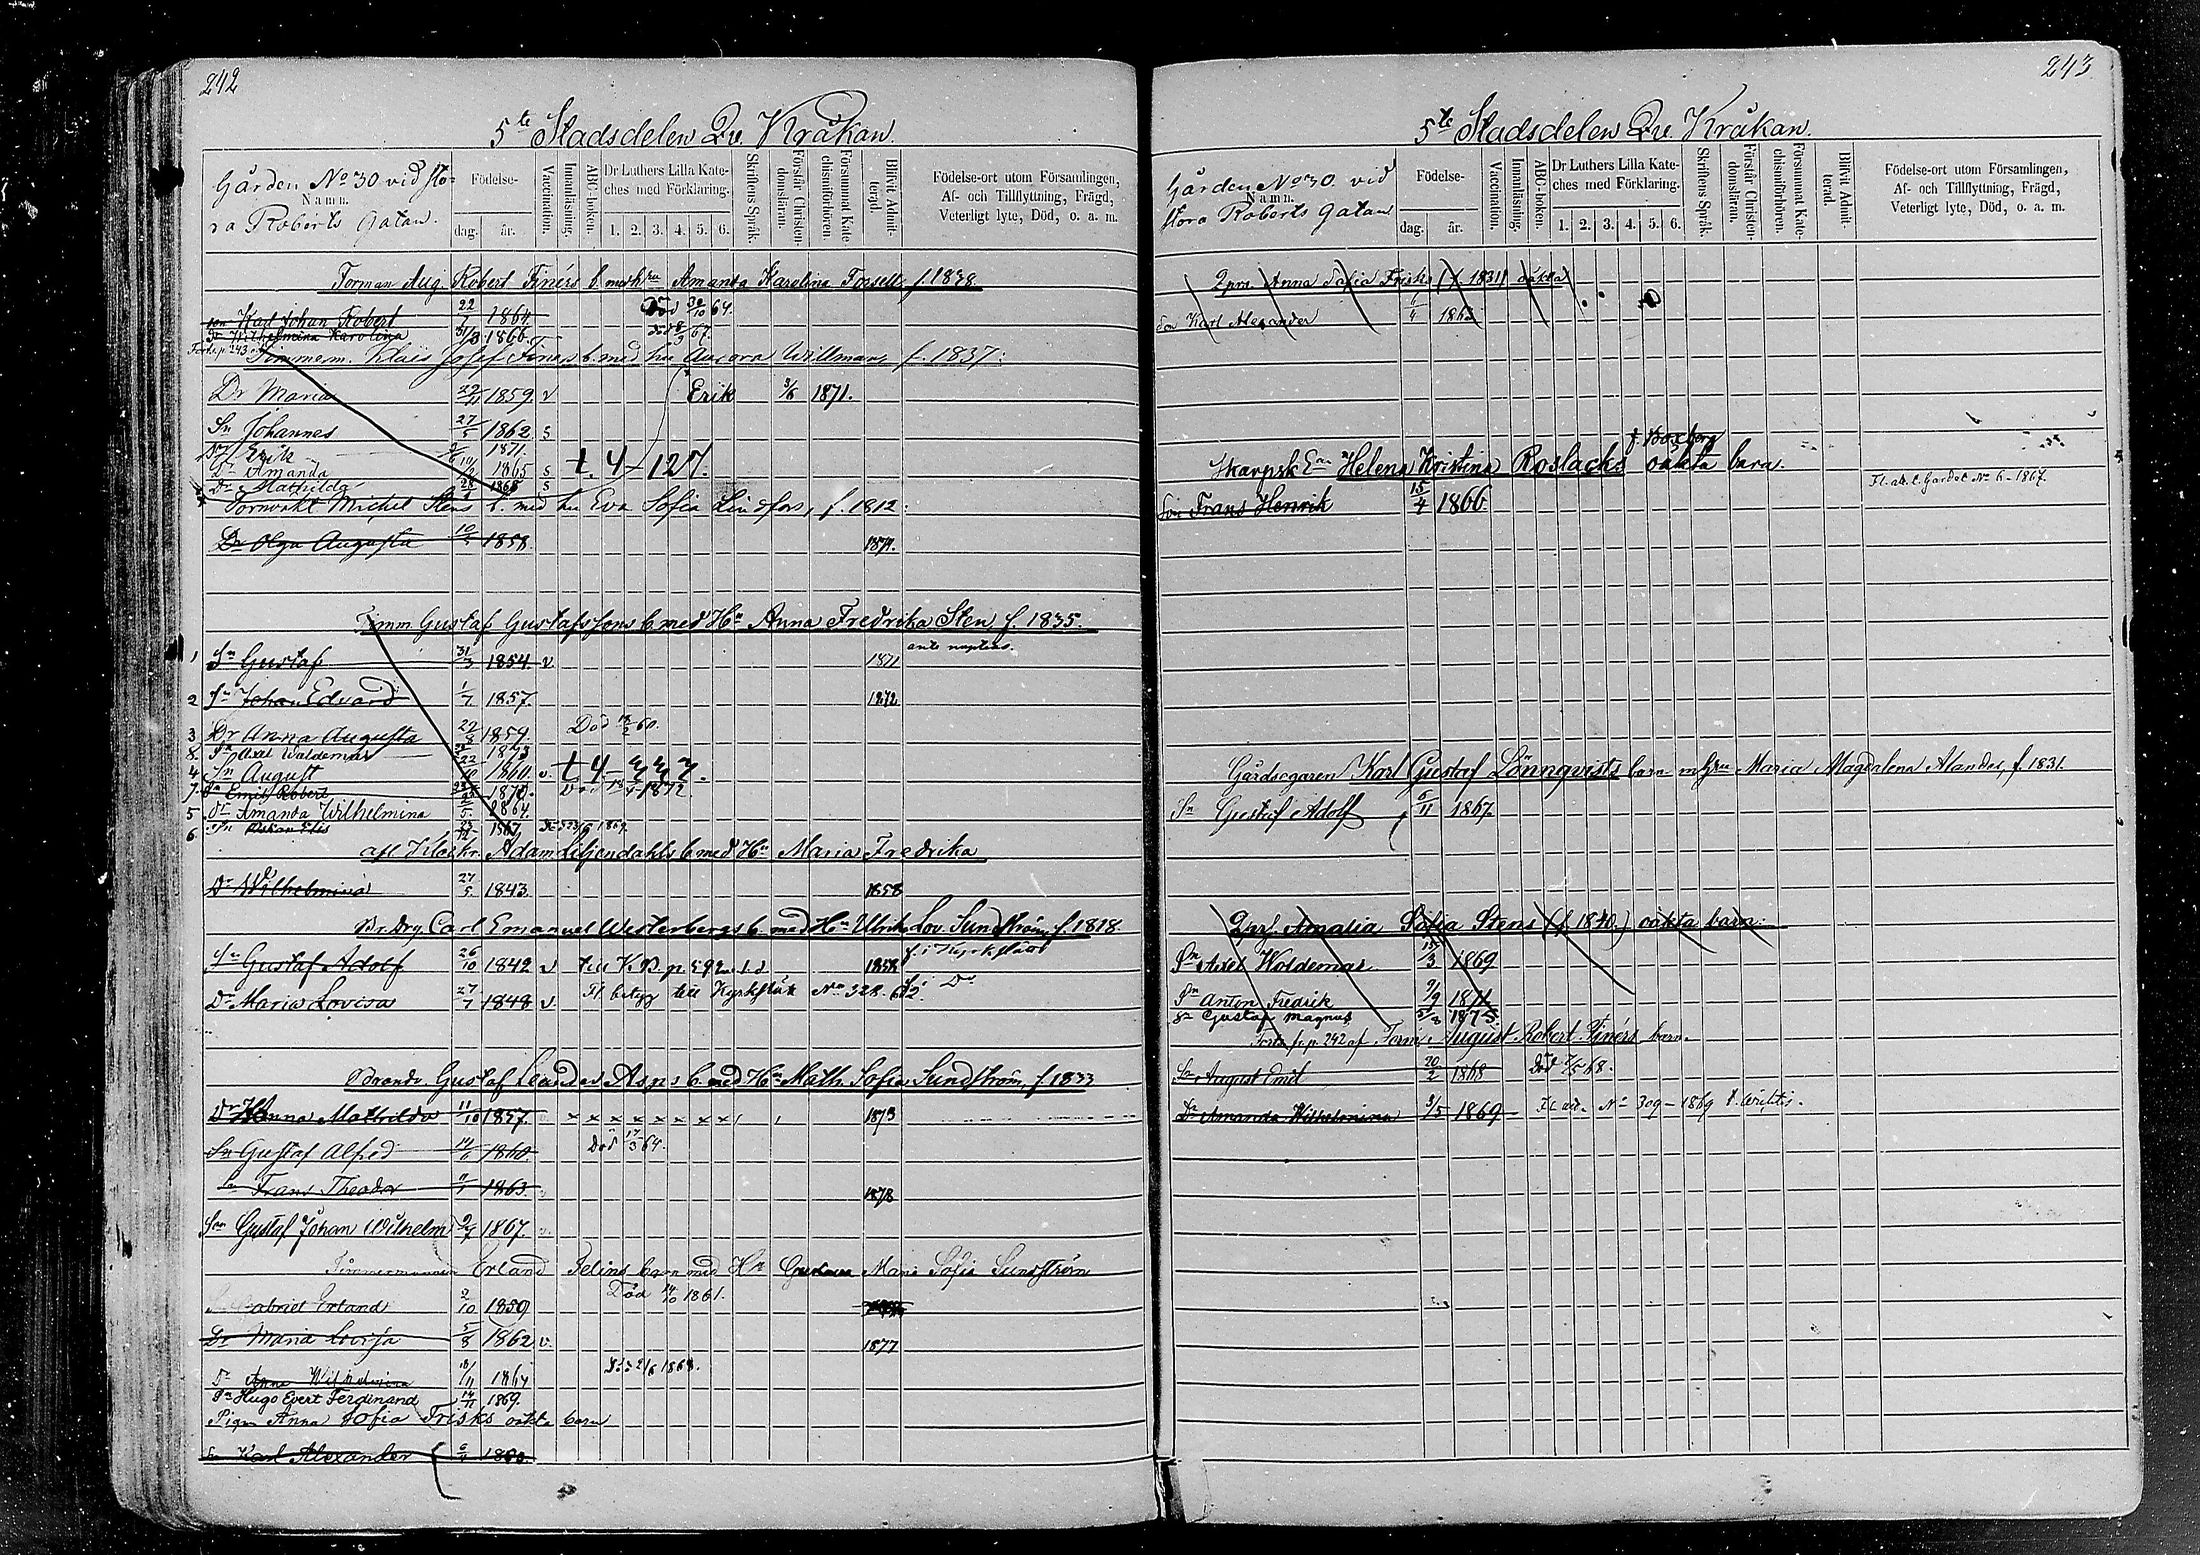 242
5te Stadsdelen Qv. Kråkan.
Gården No 30 vid sto-
Namn.
ra Roberts Gatan.
Födelse-
dag. år.
Vaccination.
Innanläsning.
ABC-boken.
Dr Luthers Lilla Kate-
ches med Förklaring.
1. 2. 3. 4. 5. 6.
Skriftens Språk.
Förstår Christen-
domsläran.
Försummat Kate-
chismiförhören.
Blifvit Admit-
terad.
Födelse-ort utom Församlingen,
Af- och Tillflyttning, Frägd,
Veterligt lyte, Död, o. a. m.
Forman Aug. Robert Finérs b. med hu Amanda Karolina Forsell f. 1838
son Karl Johan Robert 22/7 1864 Död 30/10 64.
Dr Wilhelmina Karolina 31/3 1866
Timmerm. Klais Josef b. med hu Aurora Willman f. 1837:
Dr Maria 1859 v Erik 3/6 1871.
Sn Johannes 27/5 1862 s
Erik 1871.
Dr Amanda 1865 s t. 4-127.
Dr Mathilda 1868 s
Tornvakt Michel Stens b. med hu Eva Sofia Lindfors, f. 1812:
Dr Olga Augusta 1858 1874.
Timm Gustaf Gustafssons b. med Hu Anna Fredrika Sten f. 1835.
1 Sn Gustaf 31/3 1854 v. 1871 ante nuptias.
2 Sn Johan Edvard 1/7 1857. 1872
3 Dr Anna Augusta 29/8 1859. Död 60.
8. Sn Axel Waldemar 1873
4 Sn August 22/10 1860 v. t 4
7. Sn Emil Robert 1870. Död 1872.
5 Dr Amanda Wilhelmina 1864.
6 Sn Oskar 1867 1869
afl Klockr. Adam Liljendahls b. med Hu Maria Fredrika
Dr Wilhelmina 27/5 1843. 1858
Br. Drg. Carl Emanuel Westerbergs b. med Hu Ulrika Lov. Sundström f. 1818.
Sn Gustaf Adolf 26/10 1842 v till K.B. p. 592 1858 f. i Kyrkslätt
Dr Maria Lovisa 27/7 1848 v. Fl. betyg till Kyrkslätt No 328. 62. Do
Brandv. Gustaf Leander Asps b. med Hu Math. Sofia Sundström, f. 1833
Dr Hanna Mathilda 11/10 1857. x x x x x x x x 1873
Sn Gustaf Alfred 1860 Död 17/3 64.
Sn Frans Theodor 1863 1878
Son Gustaf Johan Wilhelm 2/7 1867.
Timmermannen Erland Felins barn med Hu Gustava Maria Sofia Sundström
Gabriel Erland 2/10 1859 Död 1861.
Dr Maria Lovisa 5/8 1862 v. 1877
Dr Anna Wilhelmina 18/11 1864 Död 2/6 1868.
Sn Hugo Evert Ferdinand 1869.
Pigan Anna Sofia Frisks oäkta barn
Sn Karl Alexander
243
5te Stadsdelen Qv. Kråkan.
Gården No 30. vid
Namn.
stora Roberts gatan
Födelse-
dag. år.
Vaccination.
Innanläsning.
ABC-boken.
Dr Luthers Lilla Kate-
ches med Förklaring.
1. 2. 3. 4. 5. 6.
Skriftens Språk.
Förstår Christen-
domsläran.
Försummat Kate-
chismiförhören.
Blifvit Admit-
terad.
Födelse-ort utom Församlingen,
Af- och Tillflyttning, Frägd,
Veterligt lyte, Död, o. a. m.
Qprs Anna Sofia Frisks (f. 1831) oäkta
Son Karl Alexander 1863
f. Boxberg
Skarpsk En Helena Kristina Roslacks oäkta barn.
Son Frans Henrik 15/4 1866 No 6-1867.
Gårdsegaren Karl Gustaf Lönnqvists barn m hu Maria Magdalena Alander, f. 1831.
Sn Gustaf Adolf 6/11 1867.
Qprs. Amalia Sofia Stens (f. 1840.) oäkta barn.
Sn Axel Woldemar 15/3 1869
Sn Anton Fredrik 9/9 1871
Sn Gustaf Magnus 1875.
Forts fr. p. 242 af Form. August Robert Finérs barn.
Sn August Emil 20/2 1868 Död 7/5 68.
Dr Amanda Wilhelmina 3/5 1869 No 309-1869